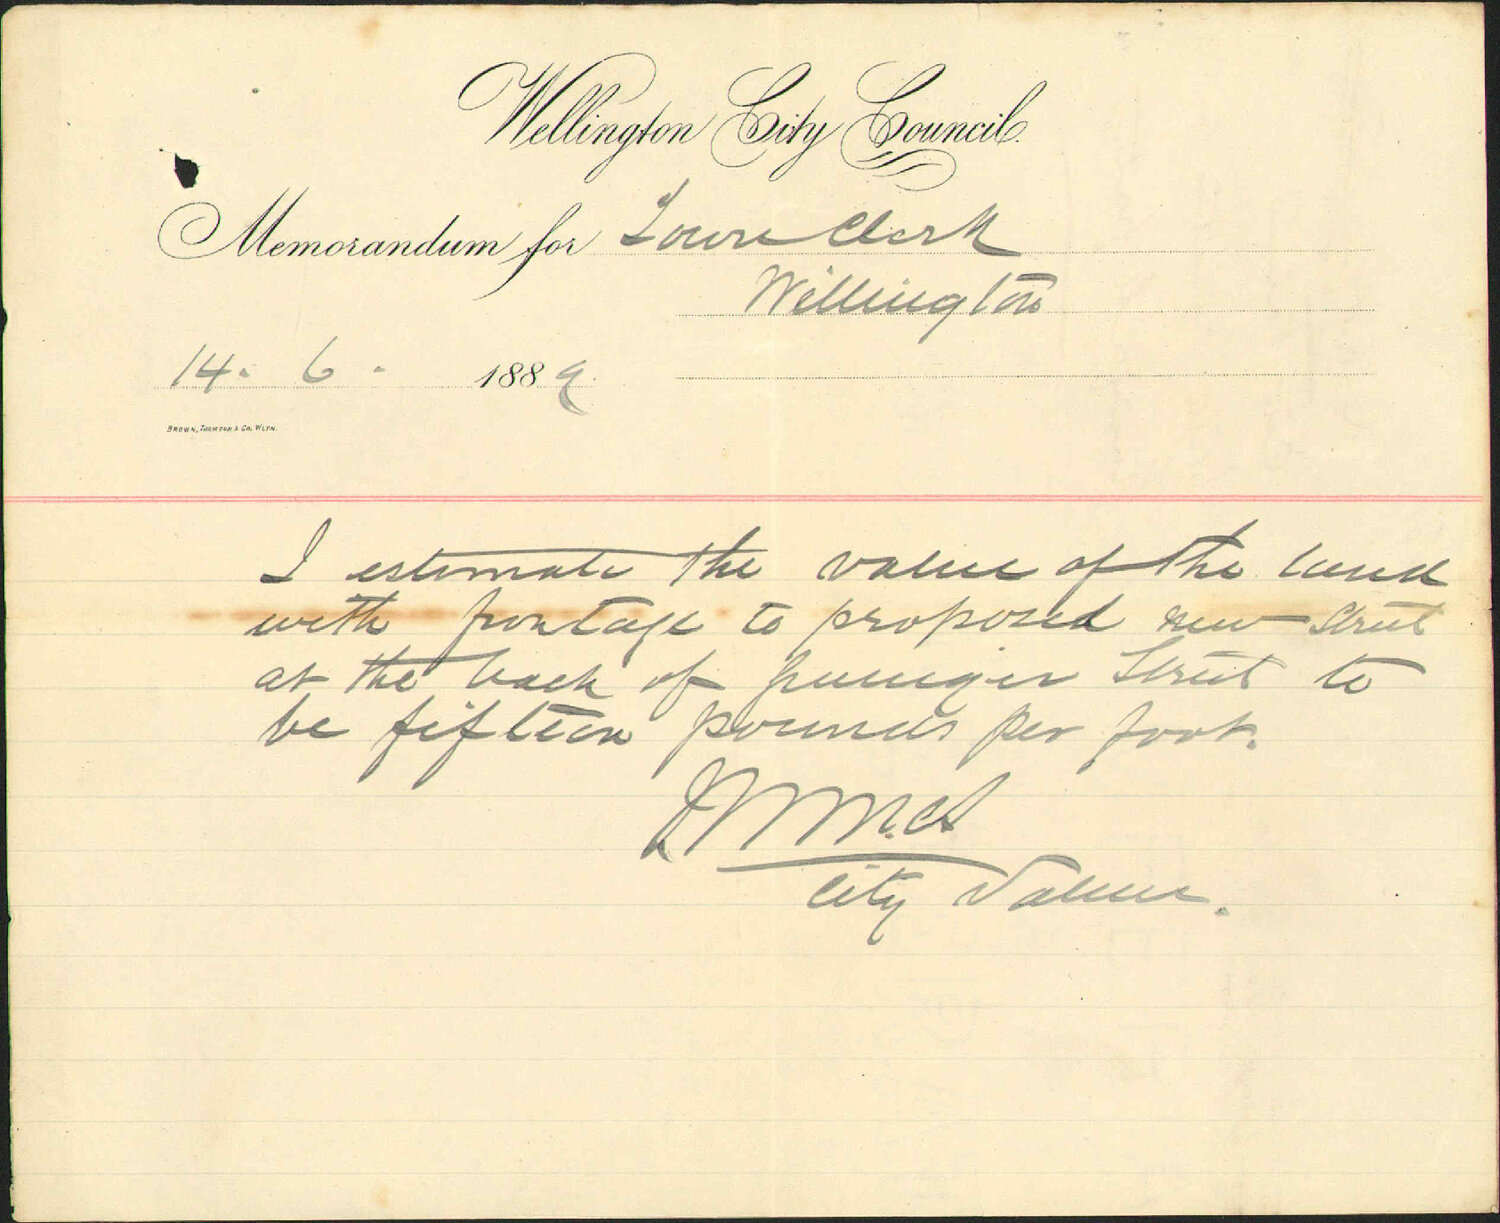 Wellington City Council.
Memorandum for Town Clerk
Wellington
14. 6. 1889.
BROWN, THOMSON & CO, WLTN.
I estimate the value of the land
with frontage to proposed new Street
at the back of Street to
be fifteen pounds per foot.
City Valuer.